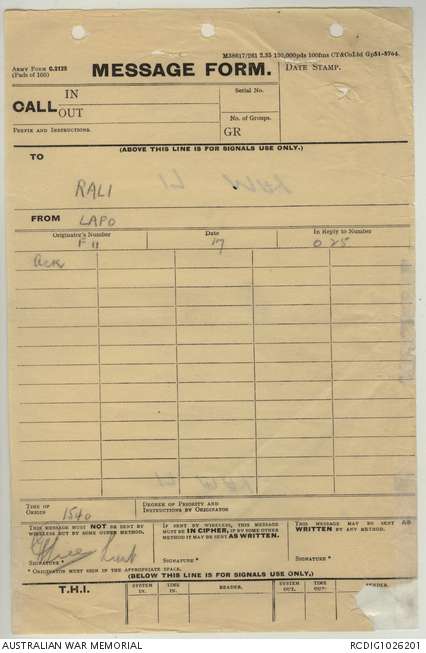 M38617/281 2.35 120,000pds 100fns CT&CoLtd Gp51-8764
Army Form C.2128
(Pads of 100)
MESSAGE FORM.
Date Stamp.
CALL
IN
OUT
Serial No.
No. of Groups.
GR
Prefix and Instructions.
(ABOVE THIS LINE IS FOR SIGNALS USE ONLY.)
TO
RALI
FROM LAPO
Originator's Number Date In Reply to Number
F 11 17 O 25
Ack
Time of Origin 1540
Degree of Priority and Instructions by Originator
This message must NOT be sent by wireless but by some other method.
If sent by wireless, this message must be IN CIPHER, if by some other method it may be sent AS WRITTEN.
This message may be sent AS WRITTEN by any method.
Lieut
Signature * Signature * Signature *
* Originator must sign in the appropriate space.
(BELOW THIS LINE IS FOR SIGNALS USE ONLY.)
T.H.I. System In. Time In. Reader. System Out. Time Out. Sender.
AUSTRALIAN WAR MEMORIAL RCDIG1026201